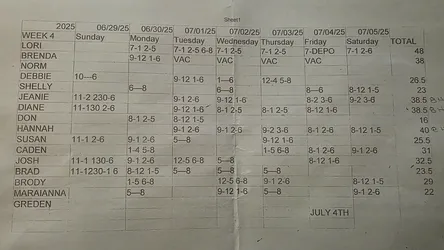 Sheet1
2025 06/29/25 06/30/25 07/01/25 07/02/25 07/03/25 07/04/25 07/05/25
WEEK 4 Sunday Monday Tuesday Wednesday Thursday Friday Saturday TOTAL
LORI 7-1 2-5 7-1 2-5 6-8 7-1 2-5 7-1 2-5 7-DEPO 7-1 2-5 48
BRENDA 9-12 1-6 VAC VAC VAC VAC 38
NORM
DEBBIE 10—6 9-12 1-6 1—6 12-4 5-8 26.5
SHELLY 6—8 6—8 8—6 8-12 1-5 23
JEANIE 11-2 230-6 9-1 2-6 9-12 1-6 8-2 3-6 9-2 3-6 38.5
DIANE 11-130 2-6 9-12 1-6 8-1 2-5 8-1 2-5 8-12 1-6 38.5
DON 8-1 2-5 8-12 1-5 16
HANNAH 9-1 2-6 9-1 2-6 9-2 3-6 8-1 2-6 8-12 1-5 40
SUSAN 11-1 2-6 9-1 2-6 5—8 9-12 1-6 25.5
CADEN 1-4 5-8 1-5 6-8 8-1 2-6 9-1 2-6 31
JOSH 11-1 130-6 9-1 2-6 12-5 6-8 5—8 8-12 1-6 32.5
BRAD 11-1230-1 6 8-12 1-5 5—8 5—8 5—8 23.5
BRODY 1-5 6-8 12-5 6-8 9-1 2-6 8-12 1-5 29
MARAIANNA 5—8 9-12 1-6 5—8 9-1 2-6 22
GREDEN
JULY 4TH